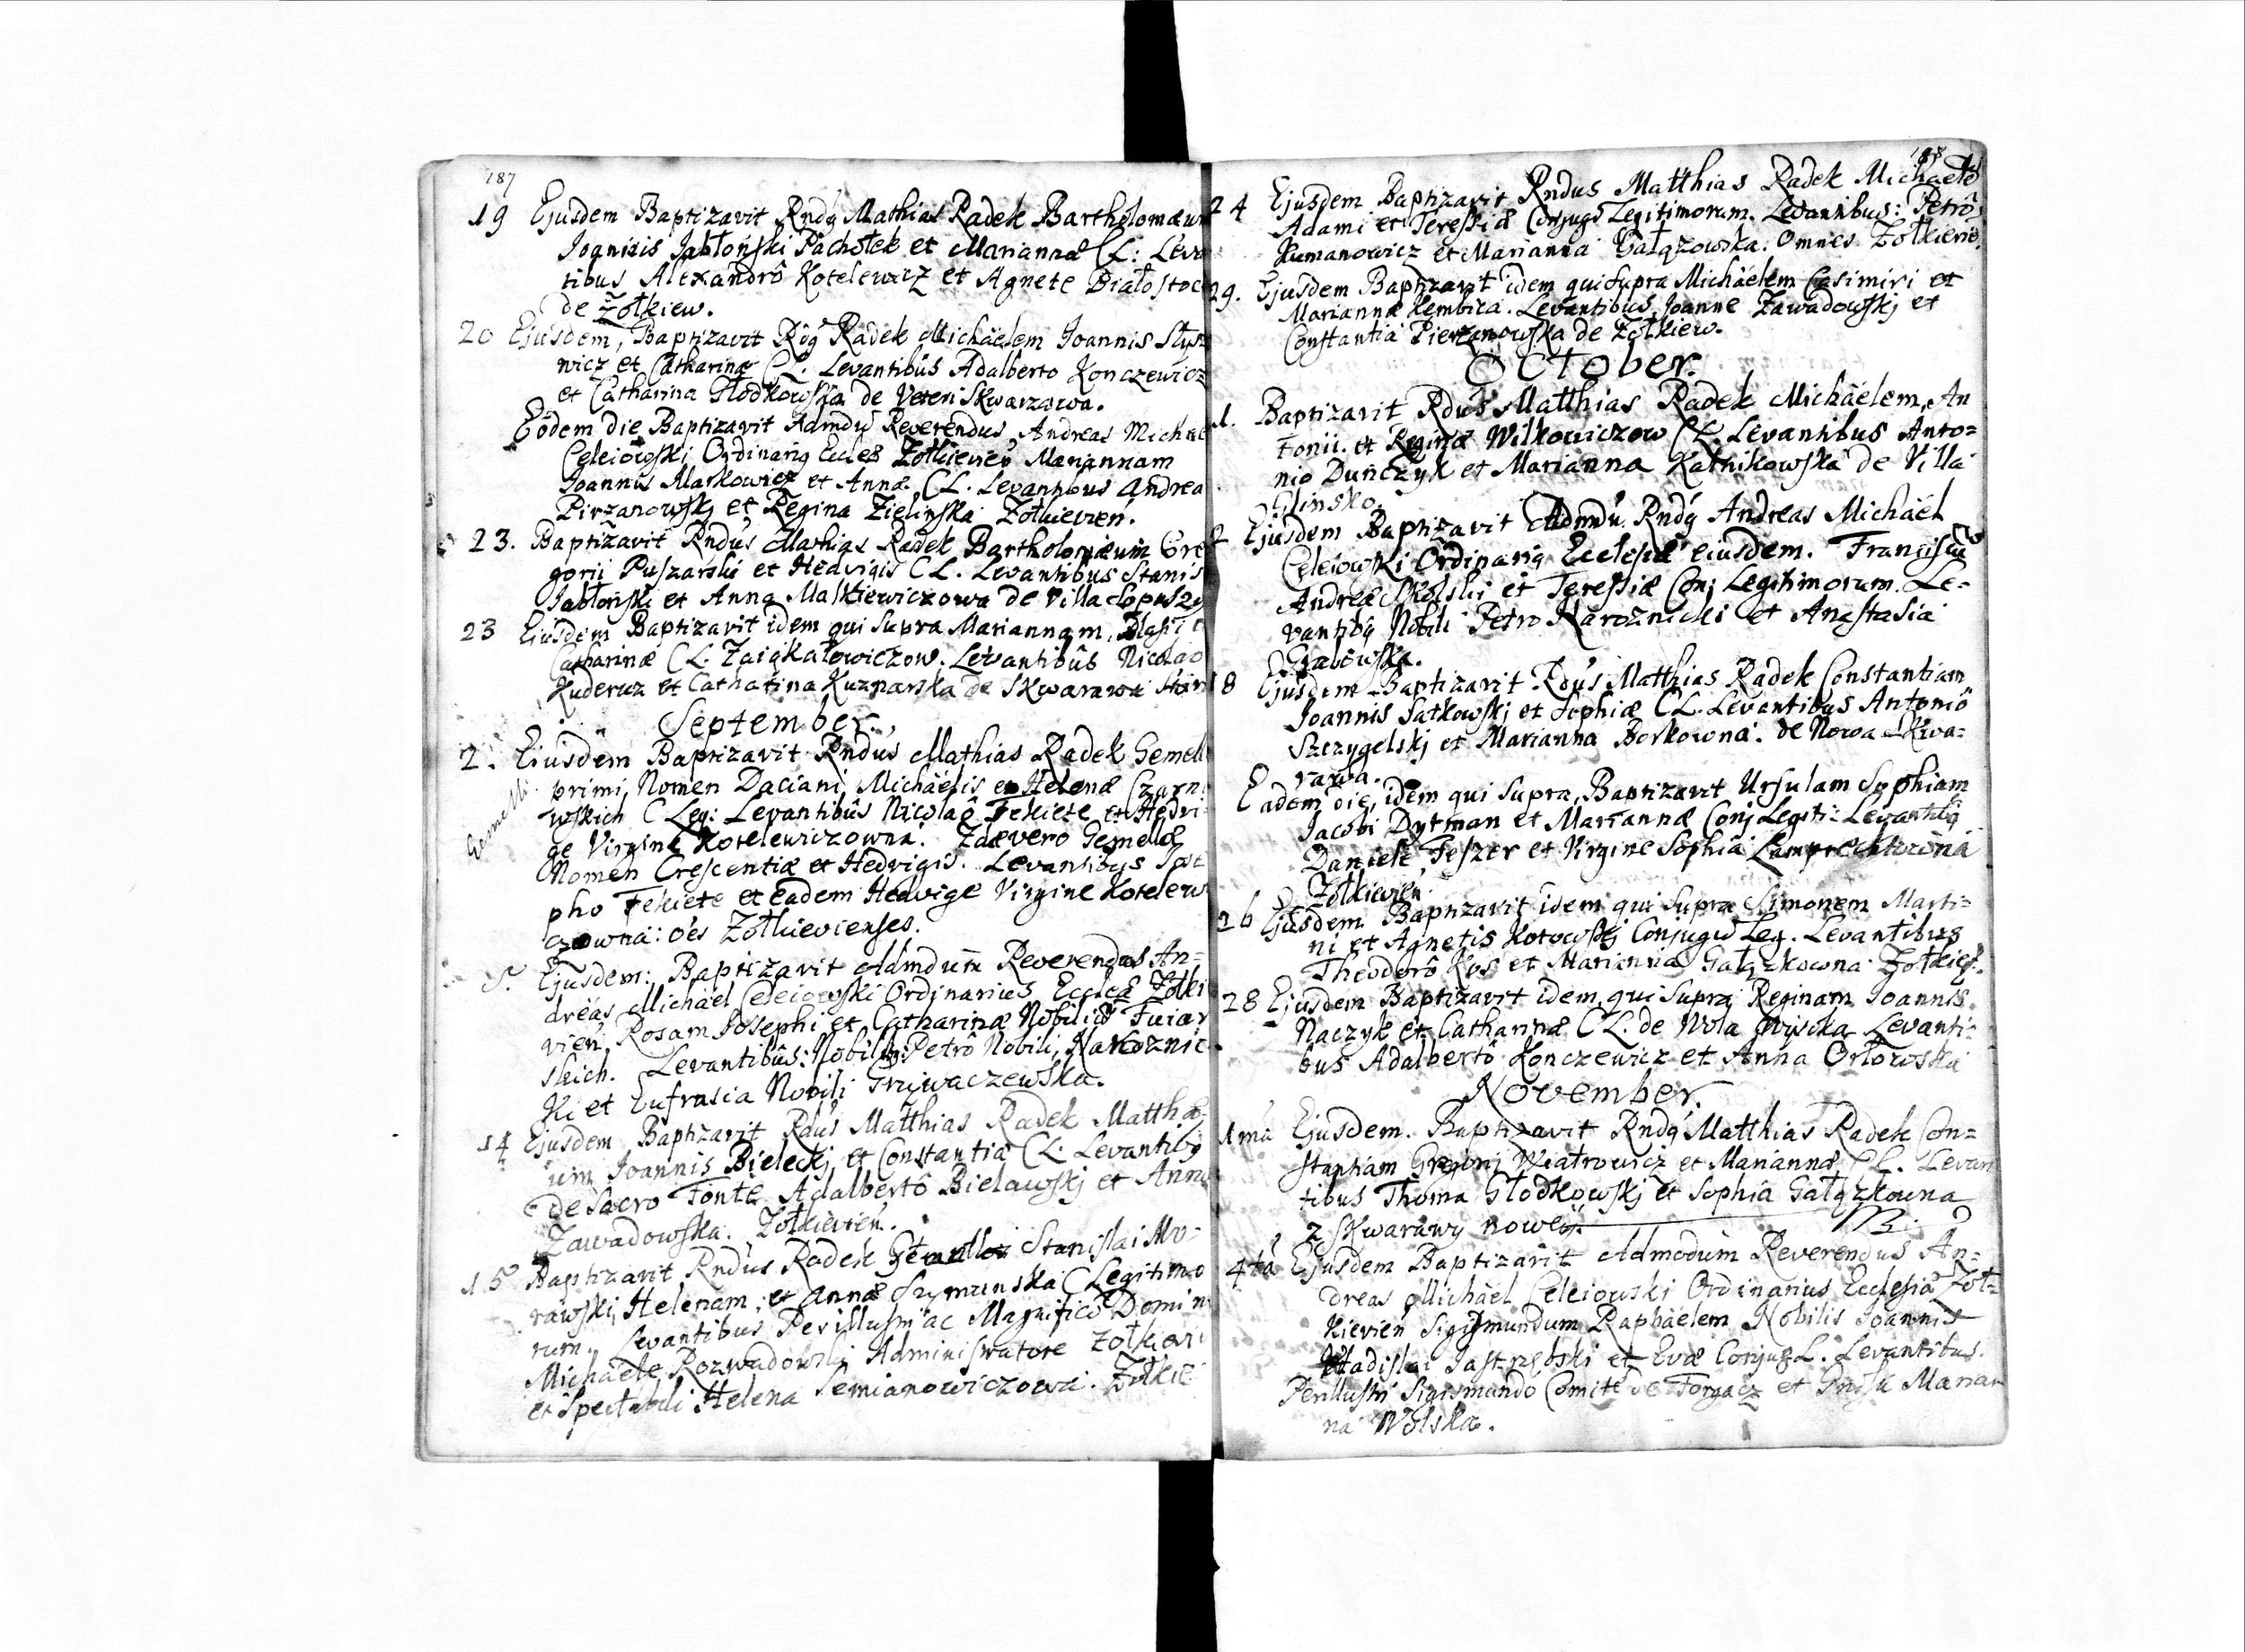 187
19 Ejusdem Baptizavit Rndq Mathias Radek Bartholomæu
Joannis Jabłonski Pachołek et Mariannæ CL: Leva
tibus Alexandrô Kotelewicz et Agnete Białostoc
de Żołkiew.
20 Ejusdem, Baptizavit Rdq Radek Michäelem Joannis
wicz et Catharinæ CL. Levantibûs Adalberto Konczewicz
et Catharina Głodkowska de Veteri Skwarzawa.
Eodem die Baptizavit Admdu Reverendus Andreas Michae
Celeiowski Ordinariq Eccles Zołkievien Mariannam
Joannis Markowicz et Annæ CL. Levantibus Andrea
Pirzanowskj et Regina Zielinska Zołkievien.
23. Baptizavit Rndus Mathias Radek Bartholomæum Gre
gorii Puszarski et Hedvigis CL. Levantibus Stanis
Jabłonski et Anna Malkiewiczowa de Villa
23 Ejusdem Baptizavit idem qui supra Mariannam,
Catharinæ CL. Levantibûs Nicolao
et Catharina de Skwarawa
September.
2. Eiusdem Baptizavit Rndus Mathias Radek Gemell
primi, Nomen Daciani, Michäelis et Helenæ Czarn
wskich C Leg: Levantibûs Nicolaô Fekiete et Hedvi
Gemelli.
ge Virgine Kotelewiczowna. 2dæ vero Gemellæ
Nomen Crescentiæ et Hedvigis. Levantibqs
pho Fekiete et eadem Hedvige Virgine Kotelew
czowna: oes Zołkievienses.
5. Ejusdem: Baptizavit Admdum Reverendus An=
dreas Michäel Celeiowski Ordinarius Eccleæ Zołki
vien, Rosam Josephi et Catharinæ Nobiliû
skich. Levantibûs: Petrô Nobili, Narożnic
ki et Eufrasia Nobili Grzywaczewska.
14 Ejusdem Baptizavit Rdus Matthias Radek Matthæ-
um Joannis Bieleckj et Constantiæ CL. Levantibq
de Sacro Fonte Adalbertô Bielawskj et Anna
Zawadowska. Zołkievien.
15 Baptizavit Rndus Radek Stanislai Mo-
rawski, Helenam, et Annæ Szymunska C Legitimo
rum. Levantibus Perillustri ac Magnifico Domin
Michaele Rozwadowski Administratore Zołkievi
et Spectabili Helena Semianowiczowa. Zołkie
188
24 Ejusdem Baptizavit Rndus Matthias Radek Michäele
Adami et Teressiæ Conjugs Legitimorum. Levantibus: Petrô
Rumanowicz et Marianna Gałązowska. Omnes Zołkievie.
29. Ejusdem Baptizavit idem qui supra Michäelem Casimiri et
Mariannæ Kembica. Levantibus Joanne Zawadowskj et
Constantia Pierzanowska de Zołkiew.
October.
1. Baptizavit Rdus Matthias Radek Michäelem, An
tonii et Reginæ Wilkowiczow CL. Levantibus Anto=
nio Dunczyk et Marianna Katnikowska de Villa
Glinsko.
2 Ejusdem Baptizavit Admdu Rndq Andreas Michäel
Celeiowski Ordinariq Ecclesiæ eiusdem. Franciscu
Andreæ Skolski et Teressiæ Conj Legitimorum. Le-
vantibq Nobili Petro Narożnicki et Anastasia
Grabowska.
18 Ejusdem Baptizavit Rdus Matthias Radek Constantiam
Joannis Satkowskj et Sophiæ CL. Levantibus Antoniô
Szczygelskj et Marianna Borkowna. de Nowa Skwa=
rawa.
Eadem die, idem qui supra, Baptizavit Ursulam Sophiam
Jacobi Dytman et Mariannæ Conj Legiti: Levantibq
Daniele Feszer et Virgine Sophia Lamprechtowna
Zołkievien
26 Ejusdem Baptizavit idem qui supra Simonem Marti=
ni et Agnetis Kotowskj Conjugu Leg. Levantibus
Theodorô Kos et Marianna Gałązkowna Zołkiev.
28 Ejusdem Baptizavit idem qui supra Reginam Joannis
Naczyk et Catharinæ CL. de Wola Levanti=
bus Adalbertô Konczewicz et Anna Orłowska
November.
1ma Ejusdem. Baptizavit Rndq Matthias Radek Con=
stantiam Gregorij Wiatrowicz et Mariannæ CL. Levan
tibus Thoma Głodkowskj et Sophia Gałązkowna
z Skwarawy nowey.
4ta Ejusdem Baptizavit Admodum Reverendus An=
dreas Michäel Celeiowski Ordinarius Ecclesiæ Zoł=
kievien Sigismundum Raphäelem Nobilis Joannis
Władislai Jastrzębski et Evæ Conjug L. Levantibus.
Perillustri Sigismundo Comite de Forgacz et Marian
na Wolska.